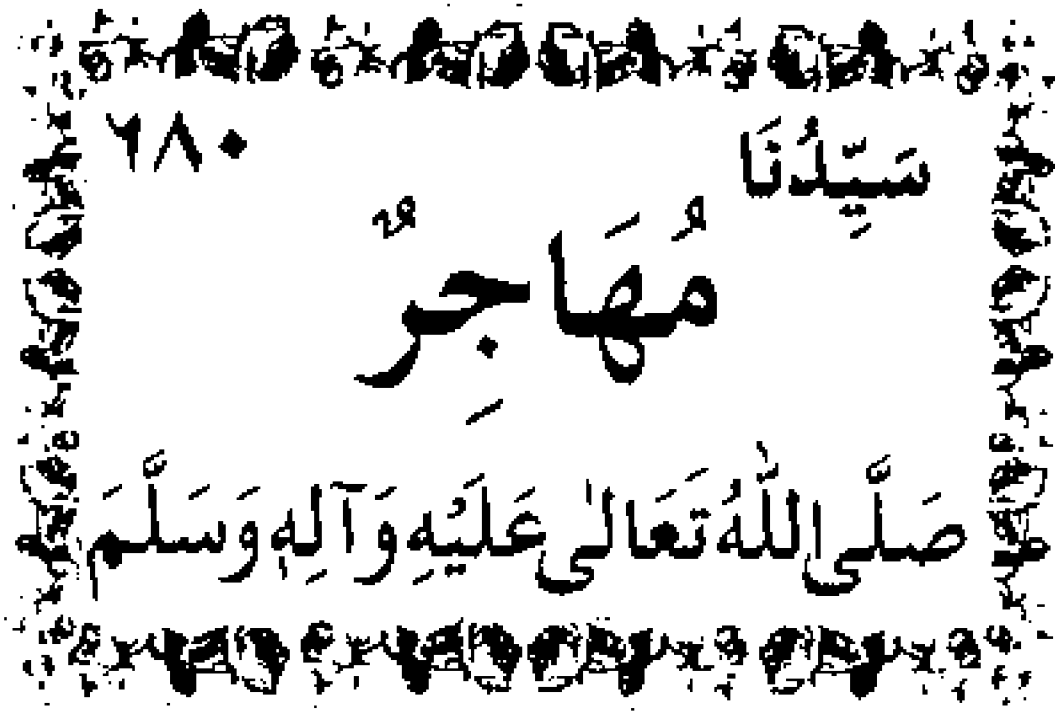 سَيِّدُنَا ٦٨٠
مُهَاجِرٌ
صَلَّى اللّٰهُ تَعَالٰى عَلَيْهِ وَآلِهٖ وَسَلَّمَ